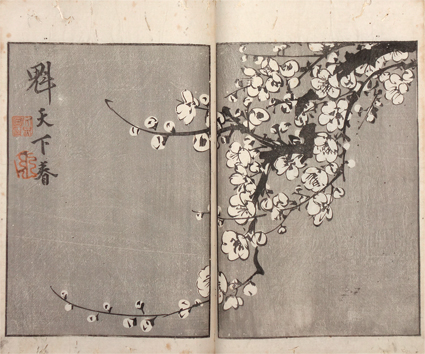 魁天下春